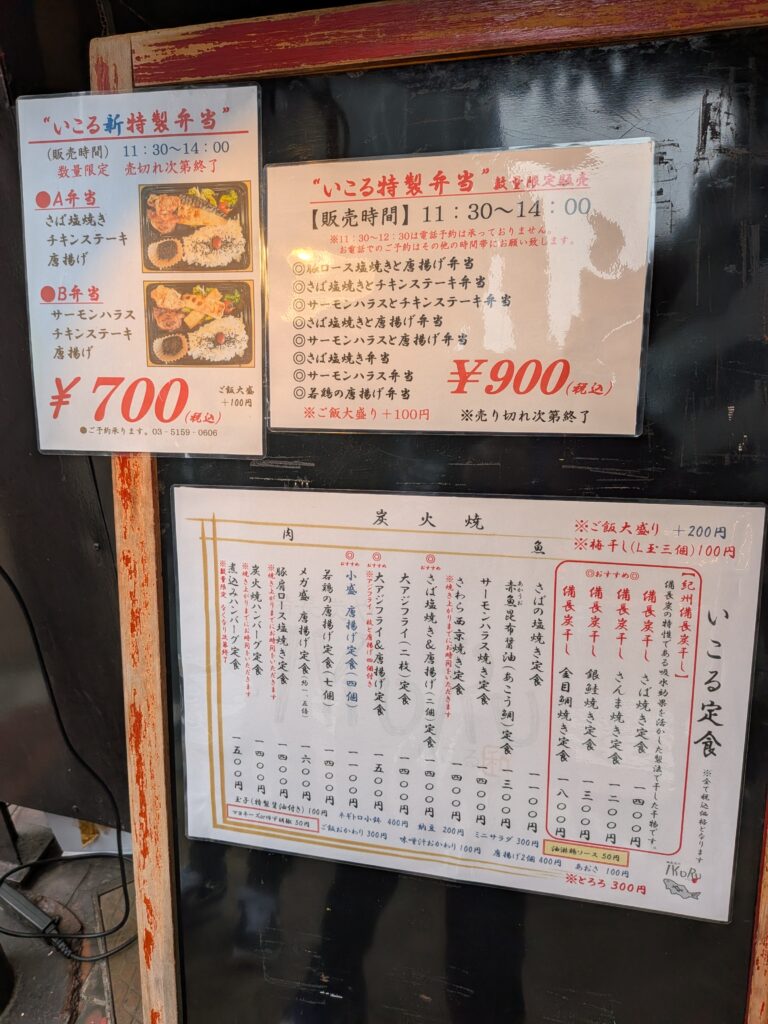 “いこる新特製弁当”
(販売時間) 11:30~14:00
数量限定 売切れ次第終了
●A弁当
さば塩焼き
チキンステーキ
唐揚げ
●B弁当
サーモンハラス
チキンステーキ
唐揚げ
¥700(税込)
ご飯大盛
+100円
●ご予約承ります。03-5159-0606
“いこる特製弁当”数量限定販売
【販売時間】11:30~14:00
※11:30~12:30は電話予約は承っておりません。
お電話でのご予約はその他の時間帯にお願い致します。
◎豚ロース塩焼きと唐揚げ弁当
◎さば塩焼きとチキンステーキ弁当
◎サーモンハラスとチキンステーキ弁当
◎さば塩焼きと唐揚げ弁当
◎サーモンハラスと唐揚げ弁当
◎さば塩焼き弁当
◎サーモンハラス弁当
◎若鶏の唐揚げ弁当
¥900(税込)
※ご飯大盛り+100円
※売り切れ次第終了
炭火焼
※ご飯大盛り +200円
※梅干し(L玉三個)100円
いこる定食
※全て税込価格となります
【紀州備長炭干し】
備長炭の特性である吸水効果を活かした製法で干した干物です。
◎おすすめ◎
備長炭干し さば焼き定食 一四〇〇円
備長炭干し さんま焼き定食 一二〇〇円
備長炭干し 銀鮭焼き定食 一三〇〇円
備長炭干し 金目鯛焼き定食 一八〇〇円
魚
さばの塩焼き定食 一一〇〇円
赤魚昆布醤油(あこう鯛)定食 一三〇〇円
あかうお
サーモンハラス焼き定食 一四〇〇円
さわら西京焼き定食 一四〇〇円
※焼き上がりまでにお時間をいただきます
◎おすすめ
さば塩焼き&唐揚げ(二個)定食 一四〇〇円
大アジフライ(二枚)定食 一四〇〇円
◎おすすめ
大アジフライ&唐揚げ定食 一五〇〇円
※アジフライ一枚と唐揚げ四個付き
肉
◎おすすめ
小盛 唐揚げ定食(四個) 一〇〇〇円
若鶏の唐揚げ定食(七個) 一四〇〇円
メガ盛 唐揚げ定食(約一、五倍) 一六〇〇円
豚肩ロース塩焼き定食 一四〇〇円
※焼き上がりまでにお時間をいただきます
炭火焼ハンバーグ定食 一四〇〇円
※焼き上がりまでにお時間をいただきます
煮込みハンバーグ定食 一五〇〇円
※数量限定 なくなり次第終了
玉子(特製醤油付き)100円
ネギトロ小鉢 400円
納豆 200円
ミニサラダ 300円
油淋鶏ソース 50円
マヨネーズor柚子胡椒 50円
ご飯おかわり 300円
味噌汁おかわり 100円
唐揚げ2個 400円
あおさ 100円
※とろろ 300円
IKORU